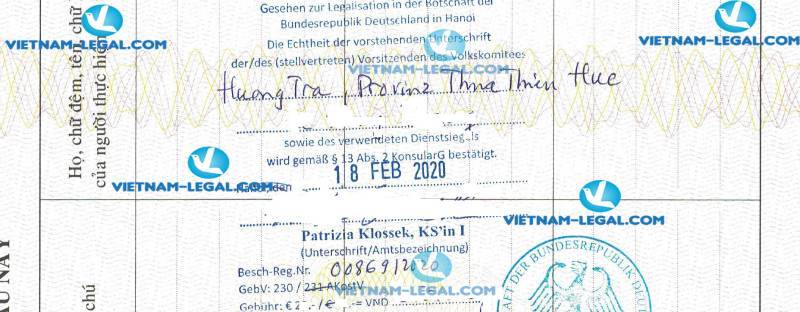 Gesehen zur Legalisation in der Botschaft der
Bundesrepublik Deutschland in Hanoi
Die Echtheit der vorstehenden Unterschrift
der/des (stellvertreten) Vorsitzenden des Volkskomitees
Huong Tra, Provinz Thua Thien Hue
sowie des verwendeten Dienstsiegels
wird gemäß § 13 Abs. 2 KonsularG bestätigt.
18 FEB 2020
Hanoi, den
Patrizia Klossek, KS'in I
(Unterschrift/Amtsbezeichnung)
Besch-Reg.Nr. 00869/2020
GebV: 230 / 231 AKostV
Gebühr: € 2 .-/€ = VND
Họ, chữ đệm, tên, chữ
của người thực hiện
chú
AU NAY
AFT DER BUNDESREPUBLIK DEUT
VIETNAM-LEGAL.COM
VIETNAM-LEGAL.COM
VIETNAM-LEGAL.COM
VIETNAM-LEGAL.COM
VIETNAM-LEGAL.COM
VIETNAM-LEGAL.COM